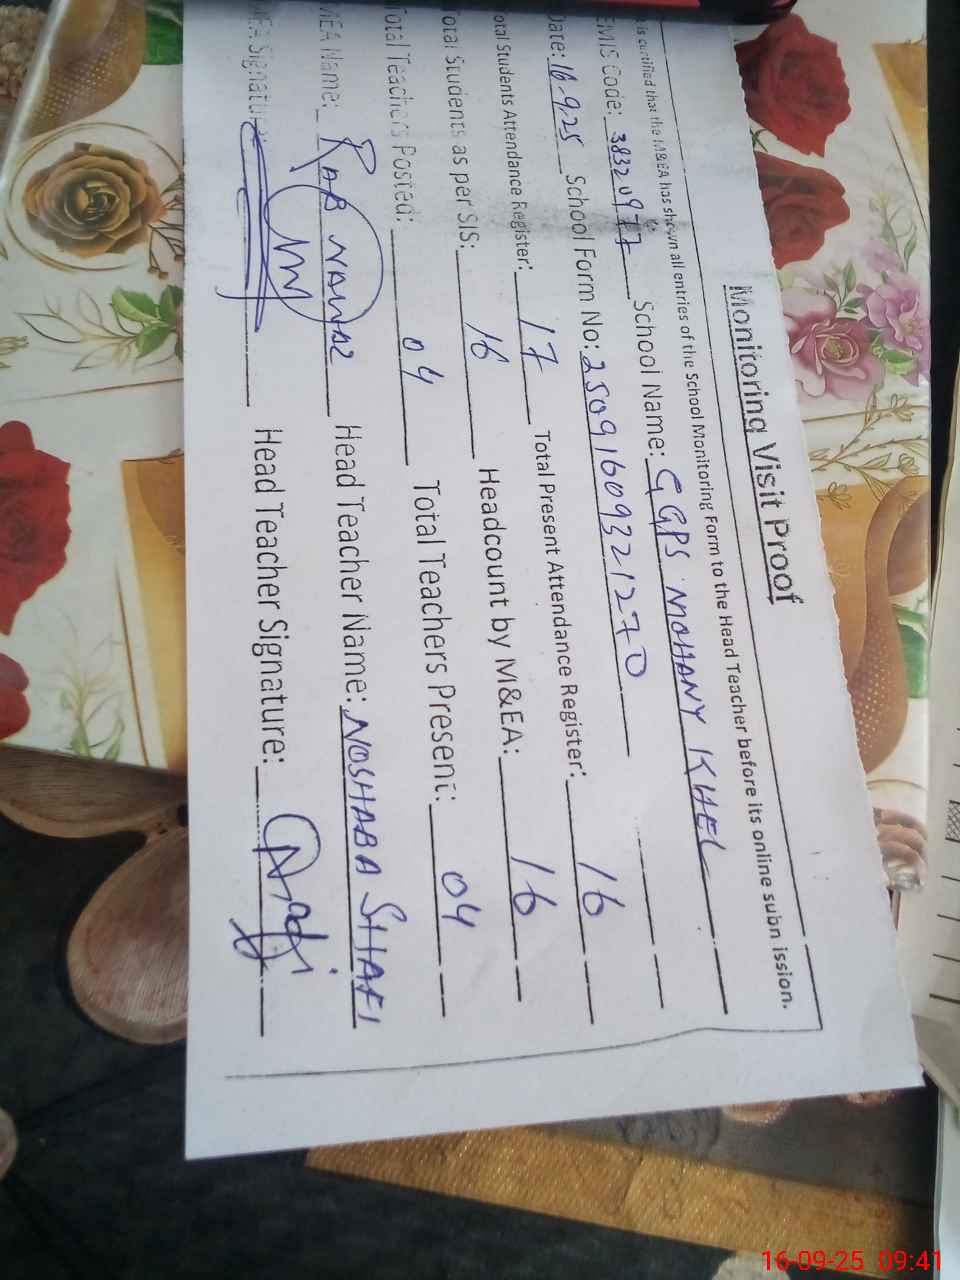 Monitoring Visit Proof
is certified that the M&EA has shown all entries of the School Monitoring Form to the Head Teacher before its online subn ission.
EMIS Code: 38320977 School Name: GGPS MOHANY KHEL
Date: 16-9-25 School Form No: 25091609321270
Total Students Attendance Register: 17 Total Present Attendance Register: 16
Total Students as per SIS: 16 Headcount by M&EA: 16
Total Teachers Posted: 04 Total Teachers Present: 04
MEA Name: RAB NAWAZ Head Teacher Name: NOSHABA SHAFI
MEA Signature: Head Teacher Signature:
16-09-25 09:41